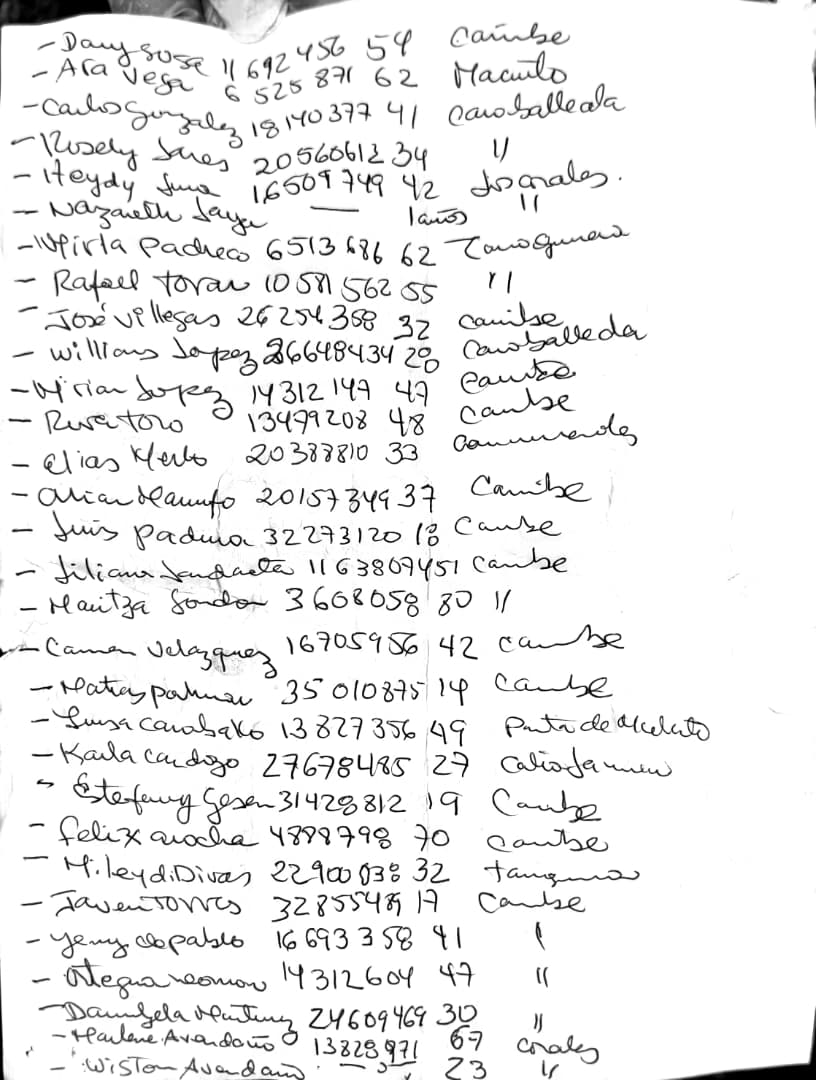 - Dany Sosa 11 692 456 54 Caribe
- Ara Vega 6 525 871 62 Macuto
- Carlos Gonzalez 18140377 41 Caraballeda
- Rosely 20560612 34 "
- Heydy 16509749 42 Los corales.
- Nazareth — 1 años "
- Mirla Pacheco 6513686 62 Tanaguarena
- Rafael Tovar 10 581 562 55 "
- José Villegas 26 254 368 32 Caribe
- Willians Lopez 26648434 28 Caraballeda
- Mirian Lopez 14312147 47 Caribe
- Rosa Toro 13479208 48 Caribe
- Elias 20388810 33
- 20157349 37 Caribe
- Luis Padura 32273120 18 Caribe
- Liliana Landaeta 11638074 51 Caribe
- Maritza 3608058 80 "
- Carmen Velazquez 16705956 42 Caribe
- Matias 35 010875 14 Caribe
- Luisa Carabaño 13 827 356 49 Punta de Mulato
- Karla Cardozo 27678485 27
- Estefany 31428812 19 Caribe
- Felix arocha 4898798 70 Caribe
- Mileydi Divas 22900038 32
- Javer Torres 32855489 17 Caribe
- Yeny de pablo 16 693 358 41 "
- Ortega 14312604 47 "
- Daniela Martinez 24609469 30 "
- Marlene Avendaño 13828971 67 Corales
- Wiston Avendaño — 23 "